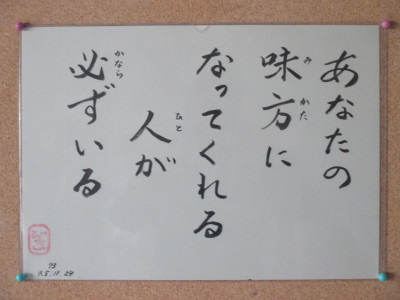 あなたの
味方に
なってくれる
人が
必ずいる
み
かた
ひと
かなら